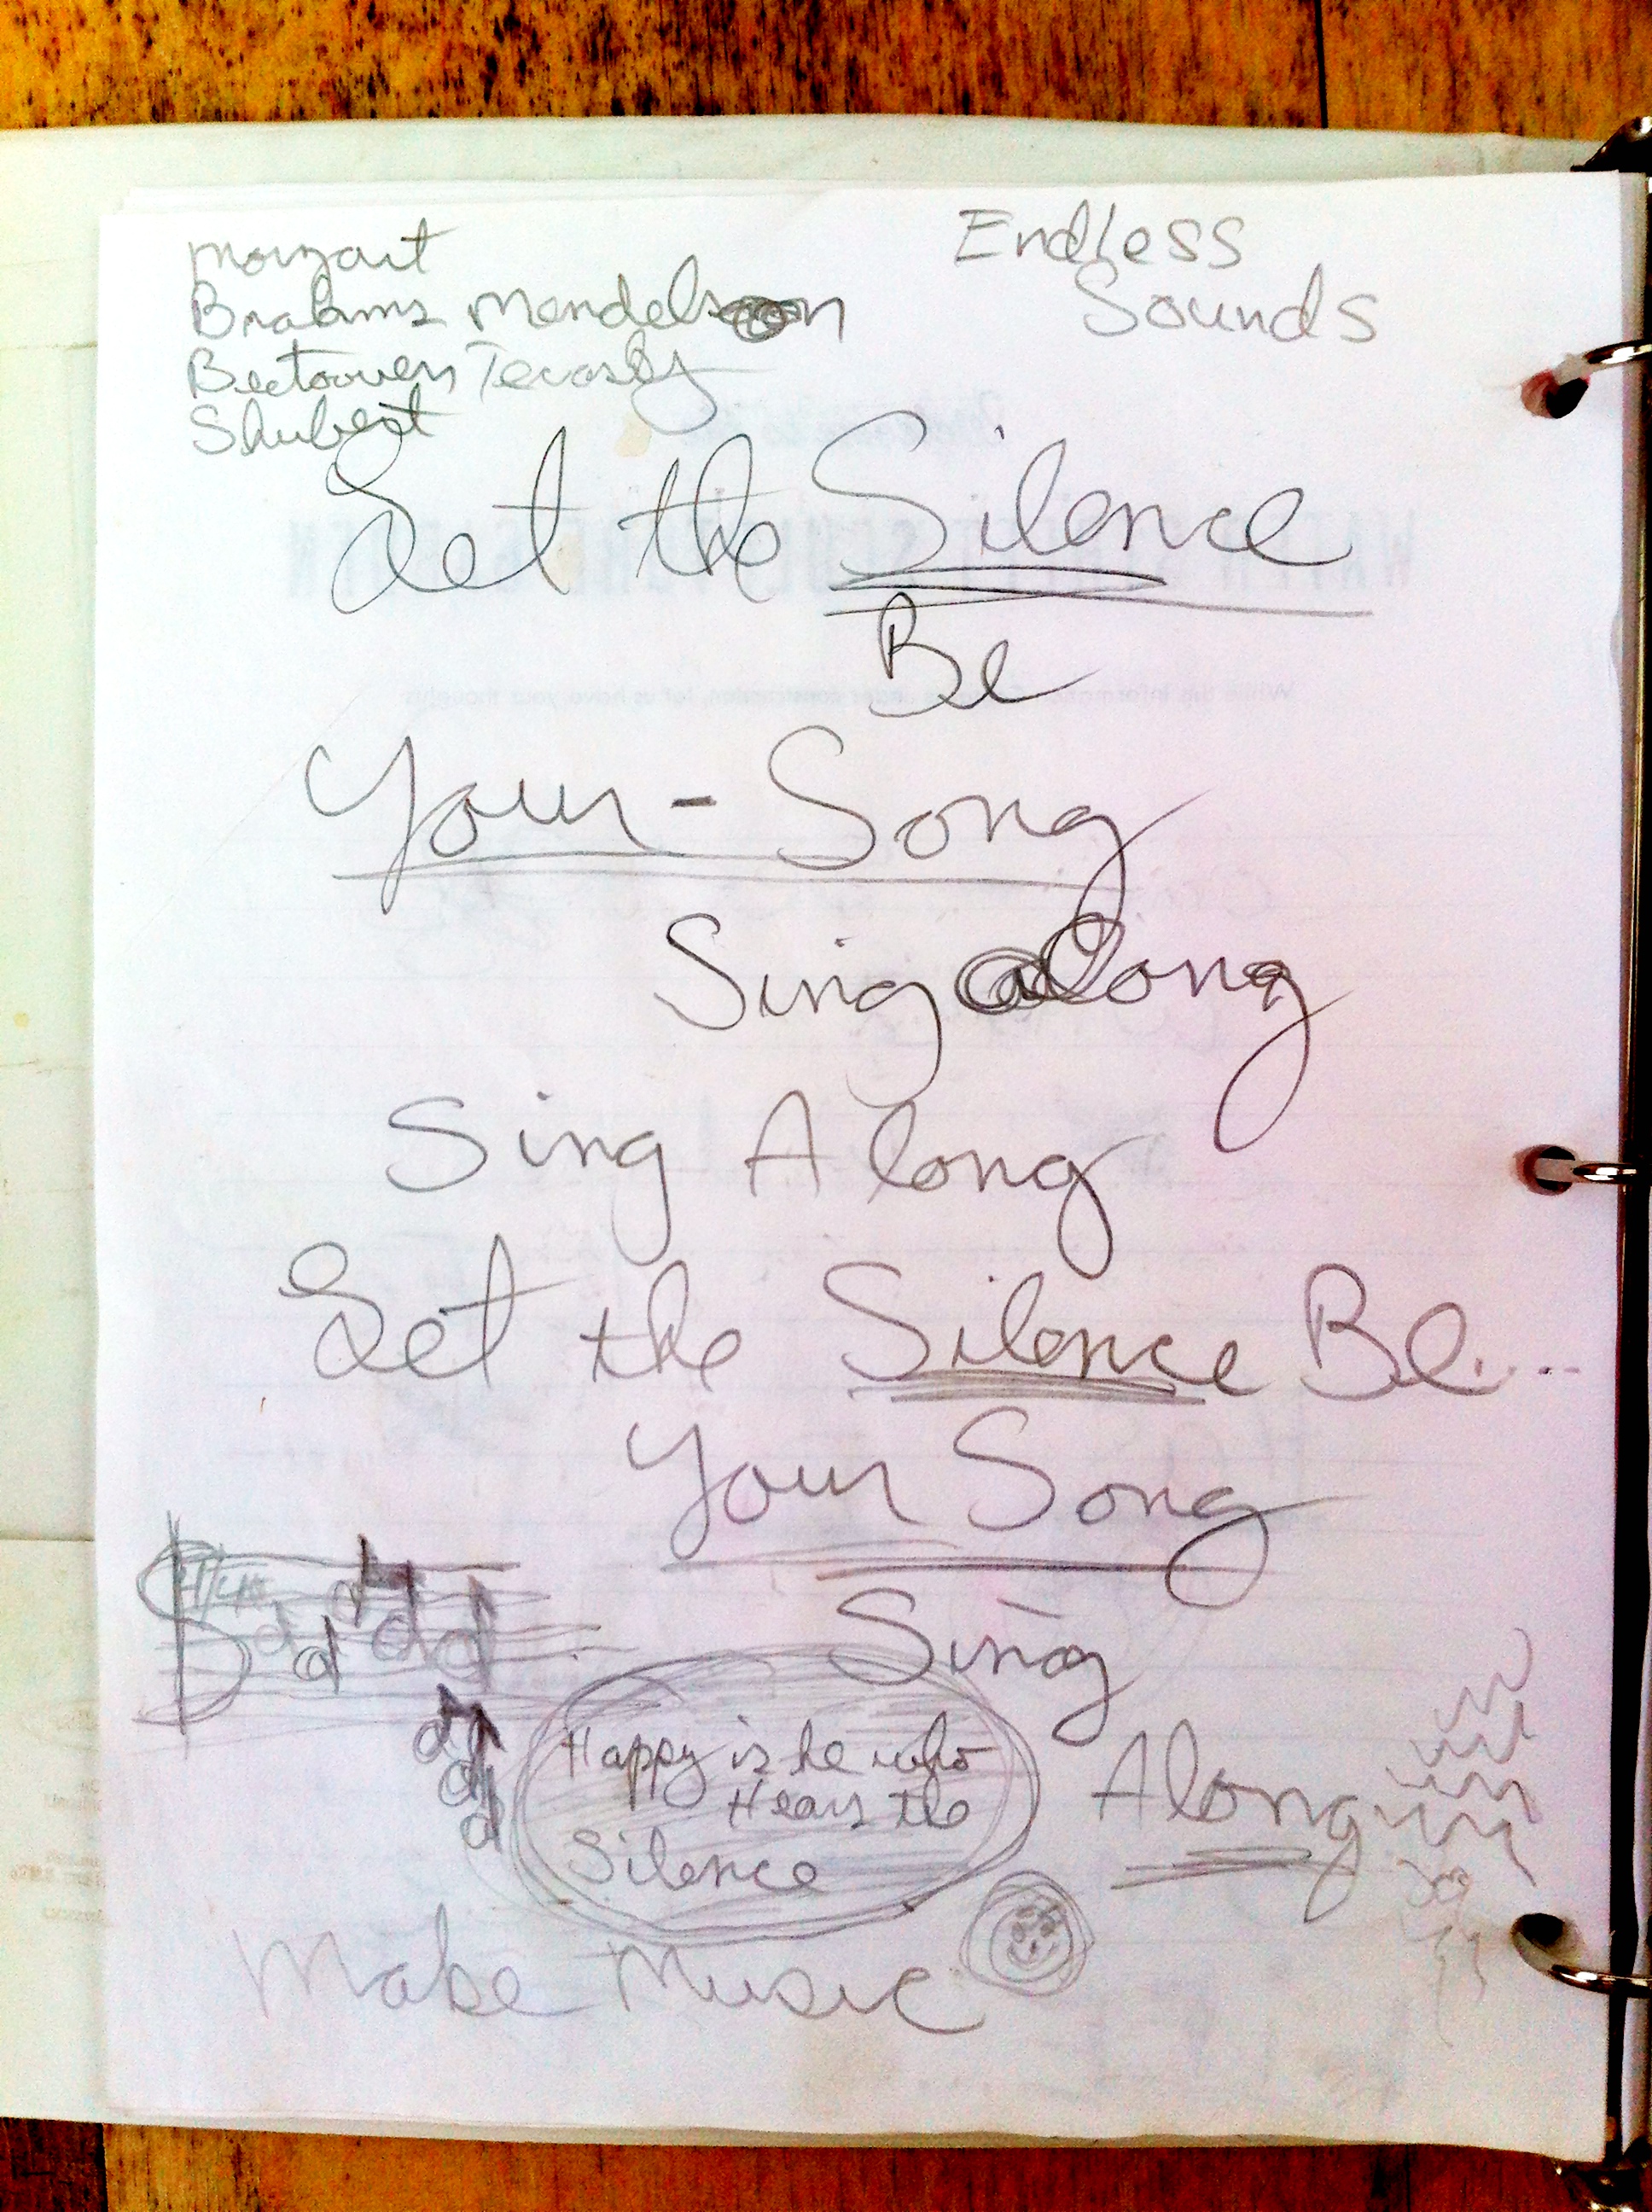 Mozart
Brahms Mendelsoon
Beetooven
Shubert
Endless
Sounds
Let the Silence
Be
Your - Song
Sing along
Sing Along
Let the Silence Be....
Your Song
Sing
Along
Happy is he who
Hears the
Silence
Make Music